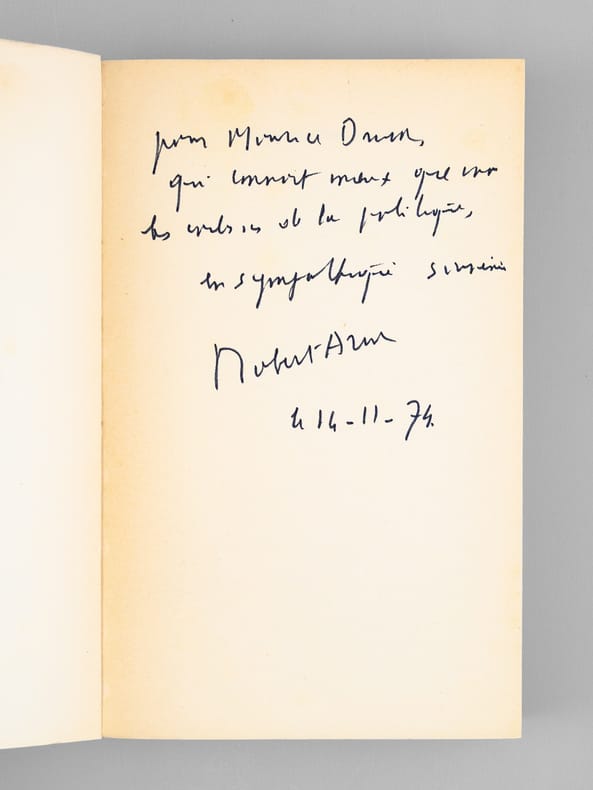 pour Maurice Druon,
qui connaît mieux que moi
les coulisses de la politique,
en sympathique souvenir
Robert Aron
le 14-11-74.